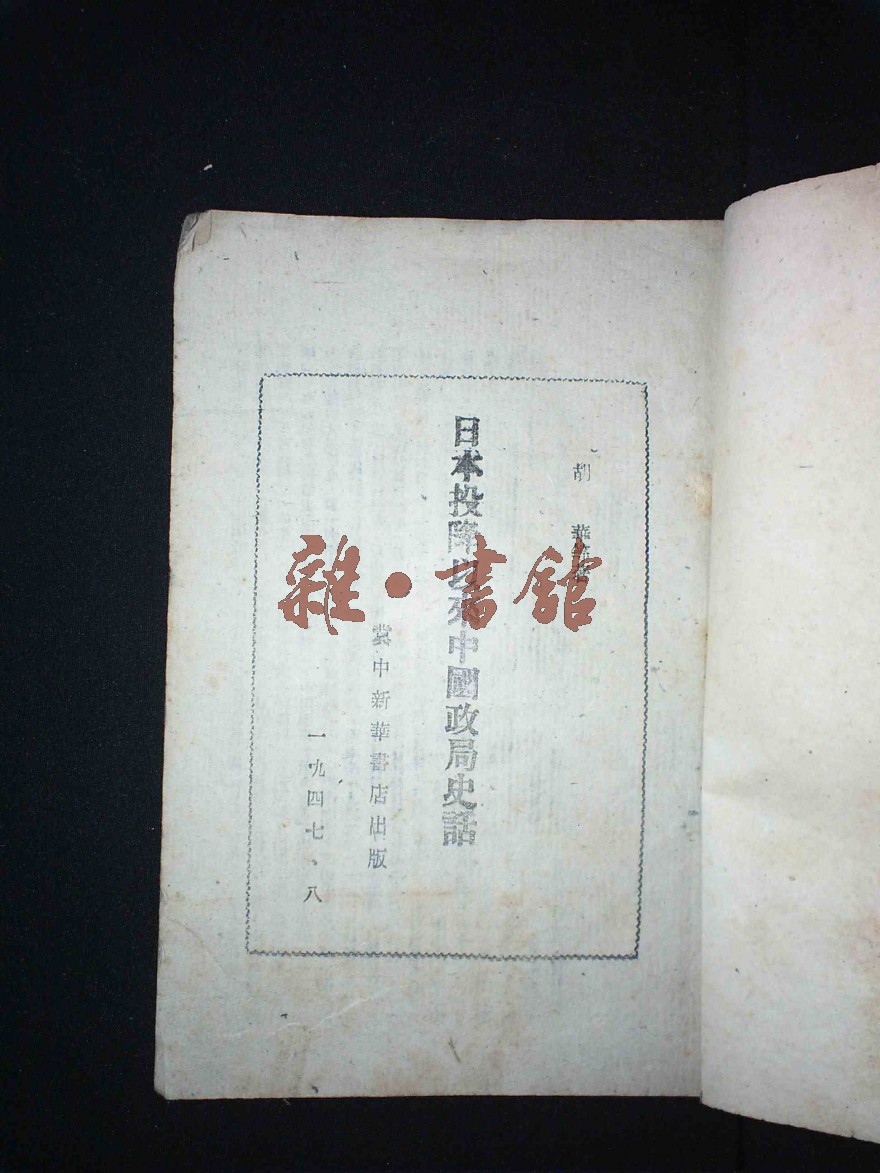 胡 華 著
日本投降以來中國政局史話
冀中新華書店出版
一九四七、八
雜·書舘